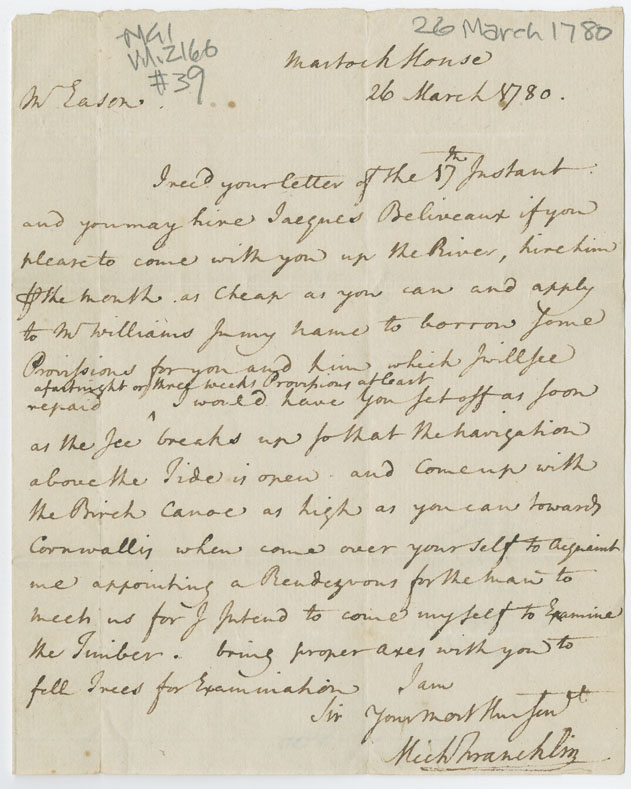 26 March 1780
MG1
Vol. 2166
#39
Martock House
26 March 1780.
Mr Eason.
I rec'd your letter of the 17th Instant.
and you may hire Jacques Beliveaux if you
please to come with you up the River, hire him
the month as cheap as you can and apply
to Mr Williams In my name to borrow some
Provissions for you and him which I will see
a fortnight or three weeks Provisions at least
repaid ^ I would have you set off as soon
as the Ice breaks up so that the navigation
above the Tide is open. and come up with
the Birch Canoe as high as you can towards
Cornwallis when come over your self to acquaint
me appointing a Rendezvous for the man to
meet us for I Intend to come myself to Examine
the Timber. bring proper axes with you to
fell Trees for Examination I am
Sir Your most Hum Sevt
Mich Francklin